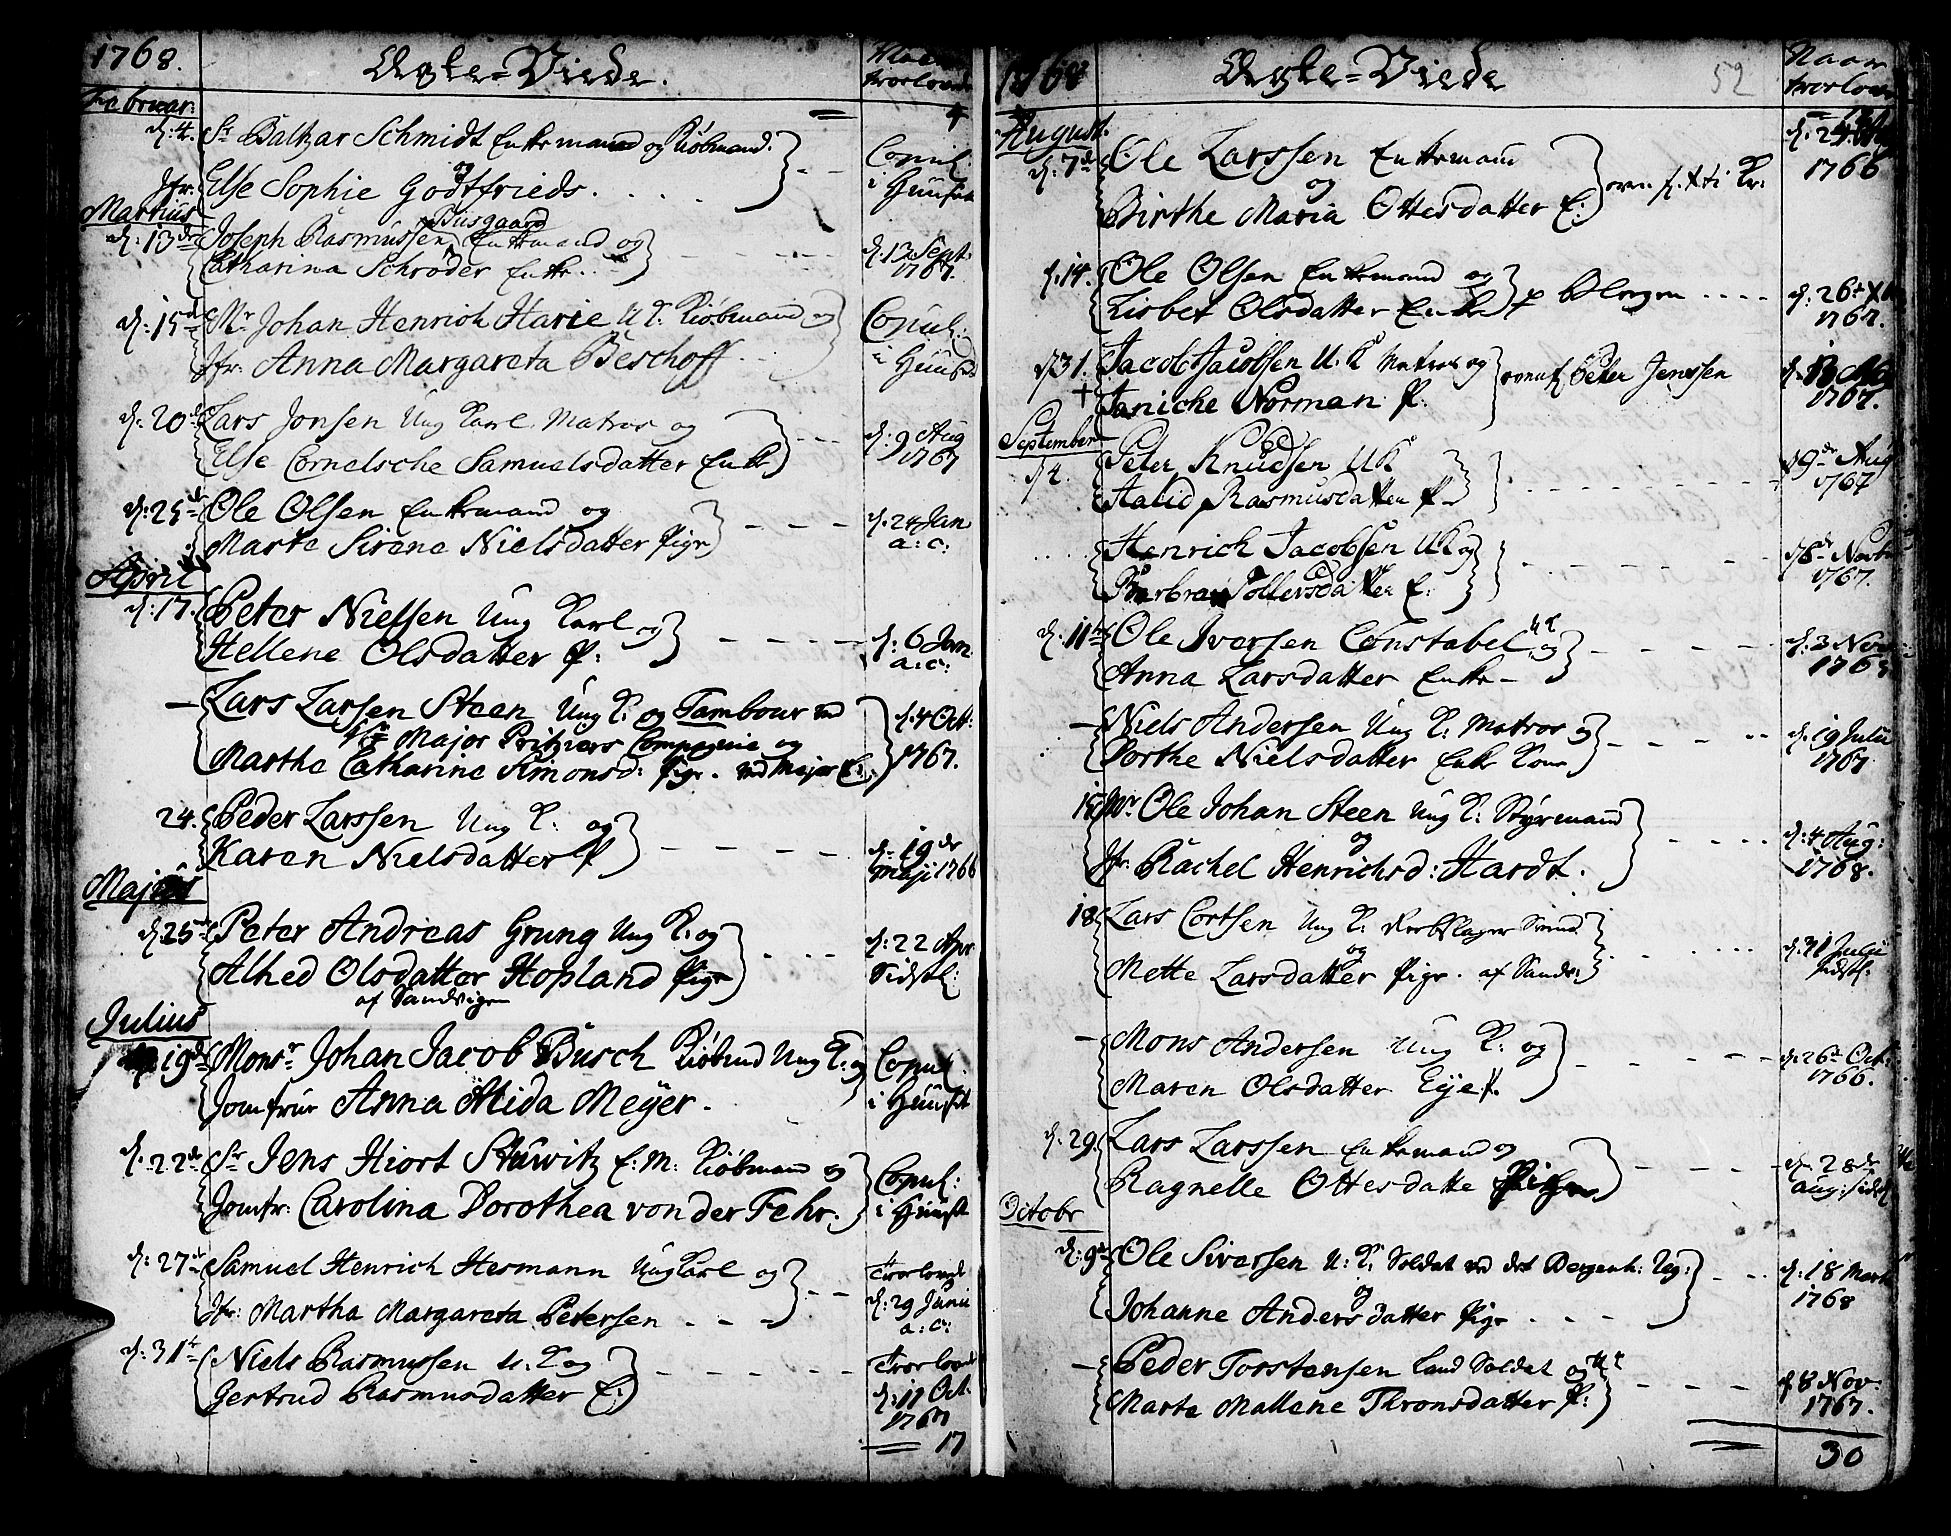 1768.
Ægte-Viede.
Naar
trorlovede
Februar:
d: 4.
Sr Baltzar Schmidt Enkemand og Kiøbmand.
og
Jfr: Else Sophie Godtfrieds.
Copul:
i Huuset
Martius
d: 13de
Joseph Rasmussen Biisgaard Enkemand og
Catharina Schrøder Enke.
d. 13 Sept:
1767.
d: 15de
Mr Johan Henrich Harie U. K. Kiøbmand og
Jfr: Anna Margareta Beschoff.
Copul:
i Huuset
d: 20de
Lars Jonsen Ung Karl Matros og
Else Cornelsche Samuelsdatter Enke
d: 9 Aug
1767
d: 25de
Ole Olsen Enkemand og
Marte Sirene Nielsdatter Pige
d. 24 Jan
a: c:
April
d: 17.
Peter Nielsen Ung Karl og
Hellene Olsdatter P:
d: 6 Jan.
a: c:
Lars Larsen Steen Ung K: og Tambour ved
Major Pritziers Compagnie og
Marthe Catharine Simonsd: Pige.
d. 4 Oct:
1767.
24.
Peder Larssen Ung K: og
Karen Nielsdatter P
d. 19de
Maji 1766
Majus
d. 25de
Peter Andreas Grung Ung K: og
Alhed Olsdatter Hopland Pige
af Sandvigen
d: 22 Apr
sidstl:
Julius
19de
Monsr Johan Jacob Busch Kiøbmd Ung K: og
Jomfrue Anna Alida Meyer.
Copul:
i Huuset
d. 22de
Sr Jens Hiort Stuwitz E: M: Kiøbmand og
Jomfr: Carolina Dorothea von der Fehr.
Copul:
i Huuset
d: 27de
Samuel Henrich Hermann Ung Karl og
Jfr: Martha Margareta Petersen
Trorlovede
d: 29 Junii
a: c:
d: 31te
Niels Rasmussen U. K og
Gertrud Rasmusdatter E:
Trorlovede
d: 11 Oct.
1767
17
1768
Ægte-Viede
52
Naar
trorlovede
August.
d: 7de
Ole Larssen Enkemand
og
Birthe Maria Ottesdatter E:
d. 24
1766
d. 14.
Ole Olsen Enkemand og
Lisbet Olsdatter Enke
d. 26
1767.
d 31.
Jacob Jacobsen U. K Matros og
Janiche Norman P.
Peter Jenssen
1767.
September
d 4.
Peter Knudsen U K
og
Aalid Rasmusdatter P.
d 9de Aug
1767
Henrich Jacobsen U K og
Barbra Sollersdatter E:
d 8de Novbr
1767.
d. 11te
Ole Iversen Constabel U K og
Anna Larsdatter Enke
d: 3 Nov:
1765
Niels Andersen Ung K: Matros og
Dorthe Nielsdatter Enke Kone
d. 19 Julii
1767
15
Mr Ole Johan Steen Ung K: Styrmand
og
Jfr: Rachel Henrichsd: Hardt.
d: 4 Aug:
1768.
18
Lars Cortsen Ung K. Reebslager Svend
og
Mette Larsdatter Pige. af Sandv:
d. 31 Julii
sidstl.
Mons Andersen Ung K: og
Maren Olsdatter Eye P.
d. 26de Oct:
1766.
d: 29.
Lars Larssen Enkemand og
Ragnelle Ottesdatte Pige
d. 28de
aug: sidstl
Octobr
d: 9de
Ole Siversen U: K: Soldat ved det Bergenh: Reg:
og
Johanne Andersdatter Pige
d. 18 Martii
1768
Peder Torstensen Land Soldat og U K
Marte Mallene Thronsdatter P:
d 8 Nov:
1767.
30